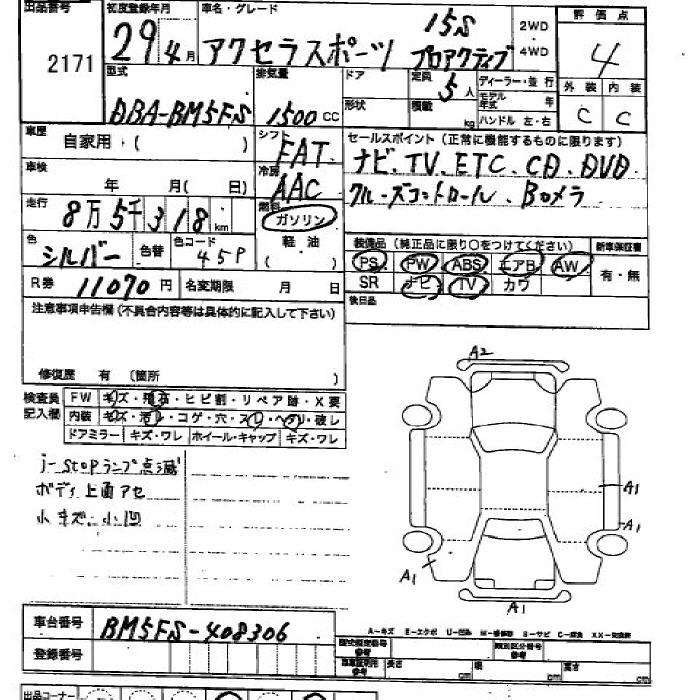 出品番号 2171
初度登録年月 29年4月
車名・グレード アクセラスポーツ 15S プロアクティブ
2WD
4WD
評価点 4
外装 C 内装 C
型式 DBA-BM5FS
排気量 1500 CC
ドア
形状
定員 5人
積載 kg
ディーラー・並行
モデル年式 年
ハンドル 左・右
車歴 自家用・( )
シフト FAT
冷房 AAC
車検 年 月(日)
走行 8万5千318km
燃料 ガソリン
軽油
( )
セールスポイント(正常に機能するものに限ります)
ナビ、TV、ETC、CD、DVD
クルーズコントロール、Bカメラ
色 シルバー 色替 色コード 45P
装備品(純正品に限り〇をつけてください) 新車保証書
PS PW ABS エアB AW 有・無
SR ナビ TV カワ
後日品
R券 11070円 名変期限 月 日
注意事項申告欄(不具合内容等は具体的に記入して下さい)
修復歴 有 (箇所 )
検査員記入欄
FW キズ・飛石・ヒビ割・リペア跡・X要
内装 キズ・汚レ・コゲ・穴・スレ・ヘタリ・破レ
ドアミラー キズ・ワレ ホイール・キャップ キズ・ワレ
i-stopランプ点滅
ボディ上面アセ
小キズ・小凹
A2
A1
A1
A1
A1
車台番号 BM5FS-408306
登録番号
A-キズ E-エクボ U-凹み W-補修跡 S-サビ C-腐食 XX-交換跡
型式指定番号 参考
類別区分番号 参考
車車証明用 参考
長さ cm 幅 cm 高さ cm
出品コーナー